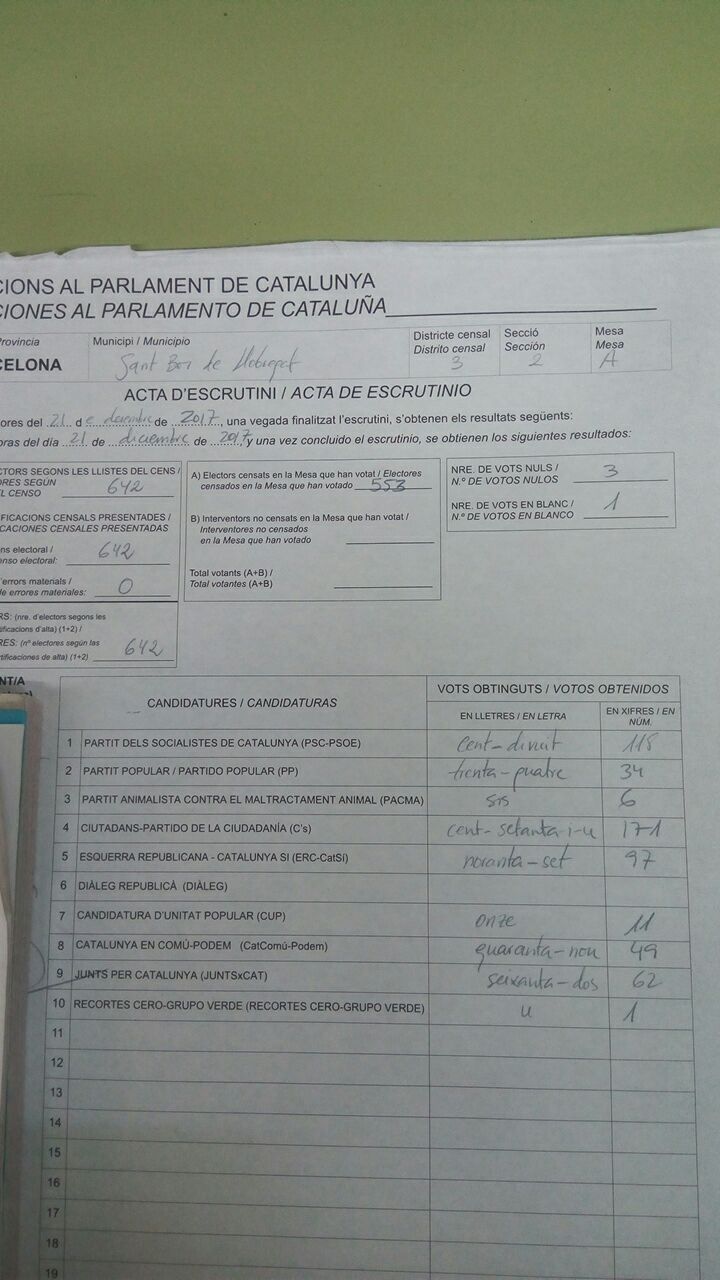 CIONS AL PARLAMENT DE CATALUNYA
CIONES AL PARLAMENTO DE CATALUÑA
Provincia
CELONA
Municipi / Municipio
Sant Boi de Llobregat
Districte censal
Distrito censal
3
Secció
Sección
2
Mesa
Mesa
A
ACTA D'ESCRUTINI / ACTA DE ESCRUTINIO
ores del 21 de desembre de 2017, una vegada finalitzat l'escrutini, s'obtenen els resultats següents:
oras del día 21 de diciembre de 2017 y una vez concluido el escrutinio, se obtienen los siguientes resultados:
CTORS SEGONS LES LLISTES DEL CENS /
ORES SEGÚN
L CENSO 642
IFICACIONS CENSALS PRESENTADES /
CACIONES CENSALES PRESENTADAS
ns electoral /
enso electoral: 642
'errors materials /
de errores materiales: 0
RS: (nre. d'electors segons les
tificacions d'alta) (1+2) /
RES: (nº electores según las
rtificaciones de alta) (1+2) 642
A) Electors censats en la Mesa que han votat / Electores
censados en la Mesa que han votado 553
B) Interventors no censats en la Mesa que han votat /
Interventores no censados
en la Mesa que han votado
Total votants (A+B) /
Total votantes (A+B)
NRE. DE VOTS NULS /
N.º DE VOTOS NULOS 3
NRE. DE VOTS EN BLANC /
N.º DE VOTOS EN BLANCO 1
NT/A
CANDIDATURES / CANDIDATURAS
VOTS OBTINGUTS / VOTOS OBTENIDOS
EN LLETRES / EN LETRA
EN XIFRES / EN NÚM.
1 PARTIT DELS SOCIALISTES DE CATALUNYA (PSC-PSOE) cent-divuit 118
2 PARTIT POPULAR / PARTIDO POPULAR (PP) trenta-quatre 34
3 PARTIT ANIMALISTA CONTRA EL MALTRACTAMENT ANIMAL (PACMA) sis 6
4 CIUTADANS-PARTIDO DE LA CIUDADANÍA (C's) cent-setanta-i-u 171
5 ESQUERRA REPUBLICANA - CATALUNYA SI (ERC-CatSí) noranta-set 97
6 DIÀLEG REPUBLICÀ (DIÀLEG)
7 CANDIDATURA D'UNITAT POPULAR (CUP) onze 11
8 CATALUNYA EN COMÚ-PODEM (CatComú-Podem) quaranta-nou 49
9 JUNTS PER CATALUNYA (JUNTSxCAT) seixanta-dos 62
10 RECORTES CERO-GRUPO VERDE (RECORTES CERO-GRUPO VERDE) u 1
11
12
13
14
15
16
17
18
19